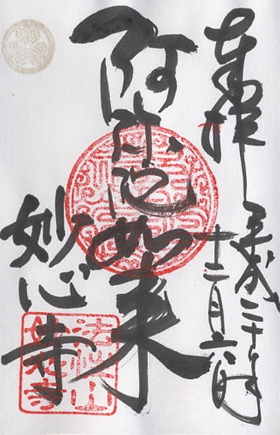 奉拝 平成二十年
十二月六日
阿弥陀如来
妙心寺